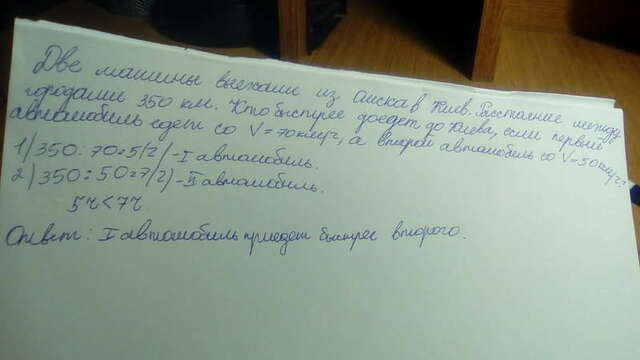 Две машины выехали из Омска в Киев. Расстояние между
городами 350 км. Кто быстрее доедет до Киева, если первый
автомобиль едет со V=70км/ч, а второй автомобиль со V=50км/ч?
1) 350:70=5(г)-I автомобиль.
2) 350:50=7(г)-II автомобиль.
5ч<7ч
Ответ: I автомобиль приедет быстрее второго.